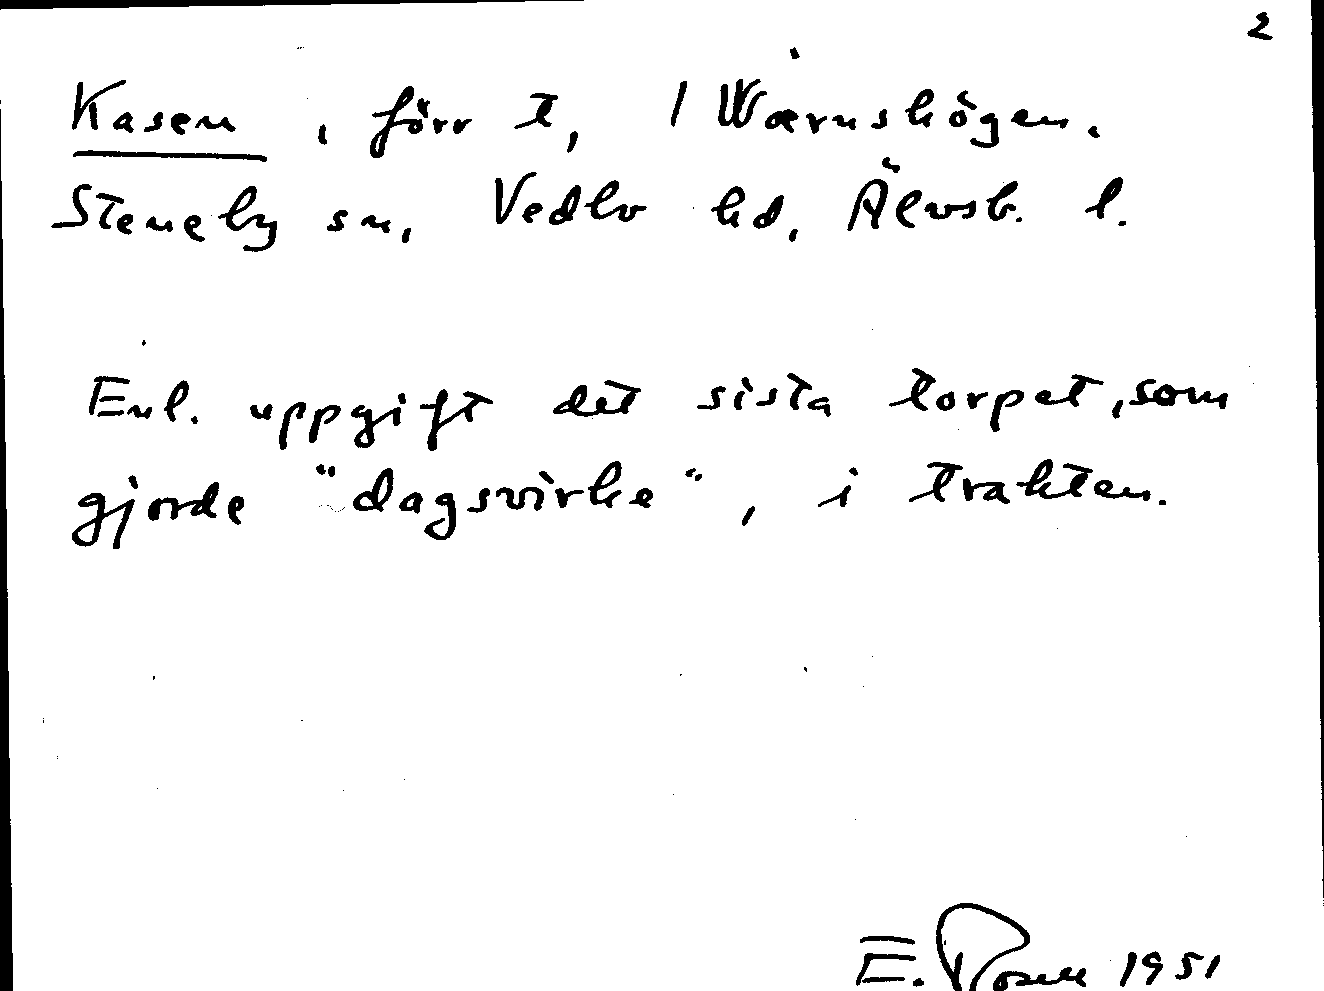 2
Kasen, förr t, / Wärnshögen.
Steneby sn, Vedbo hd, Älvsb. l.
Enl. uppgift det sista torpet, som
gjorde "dagsvirke", i trakten.
E. Rosell 1951